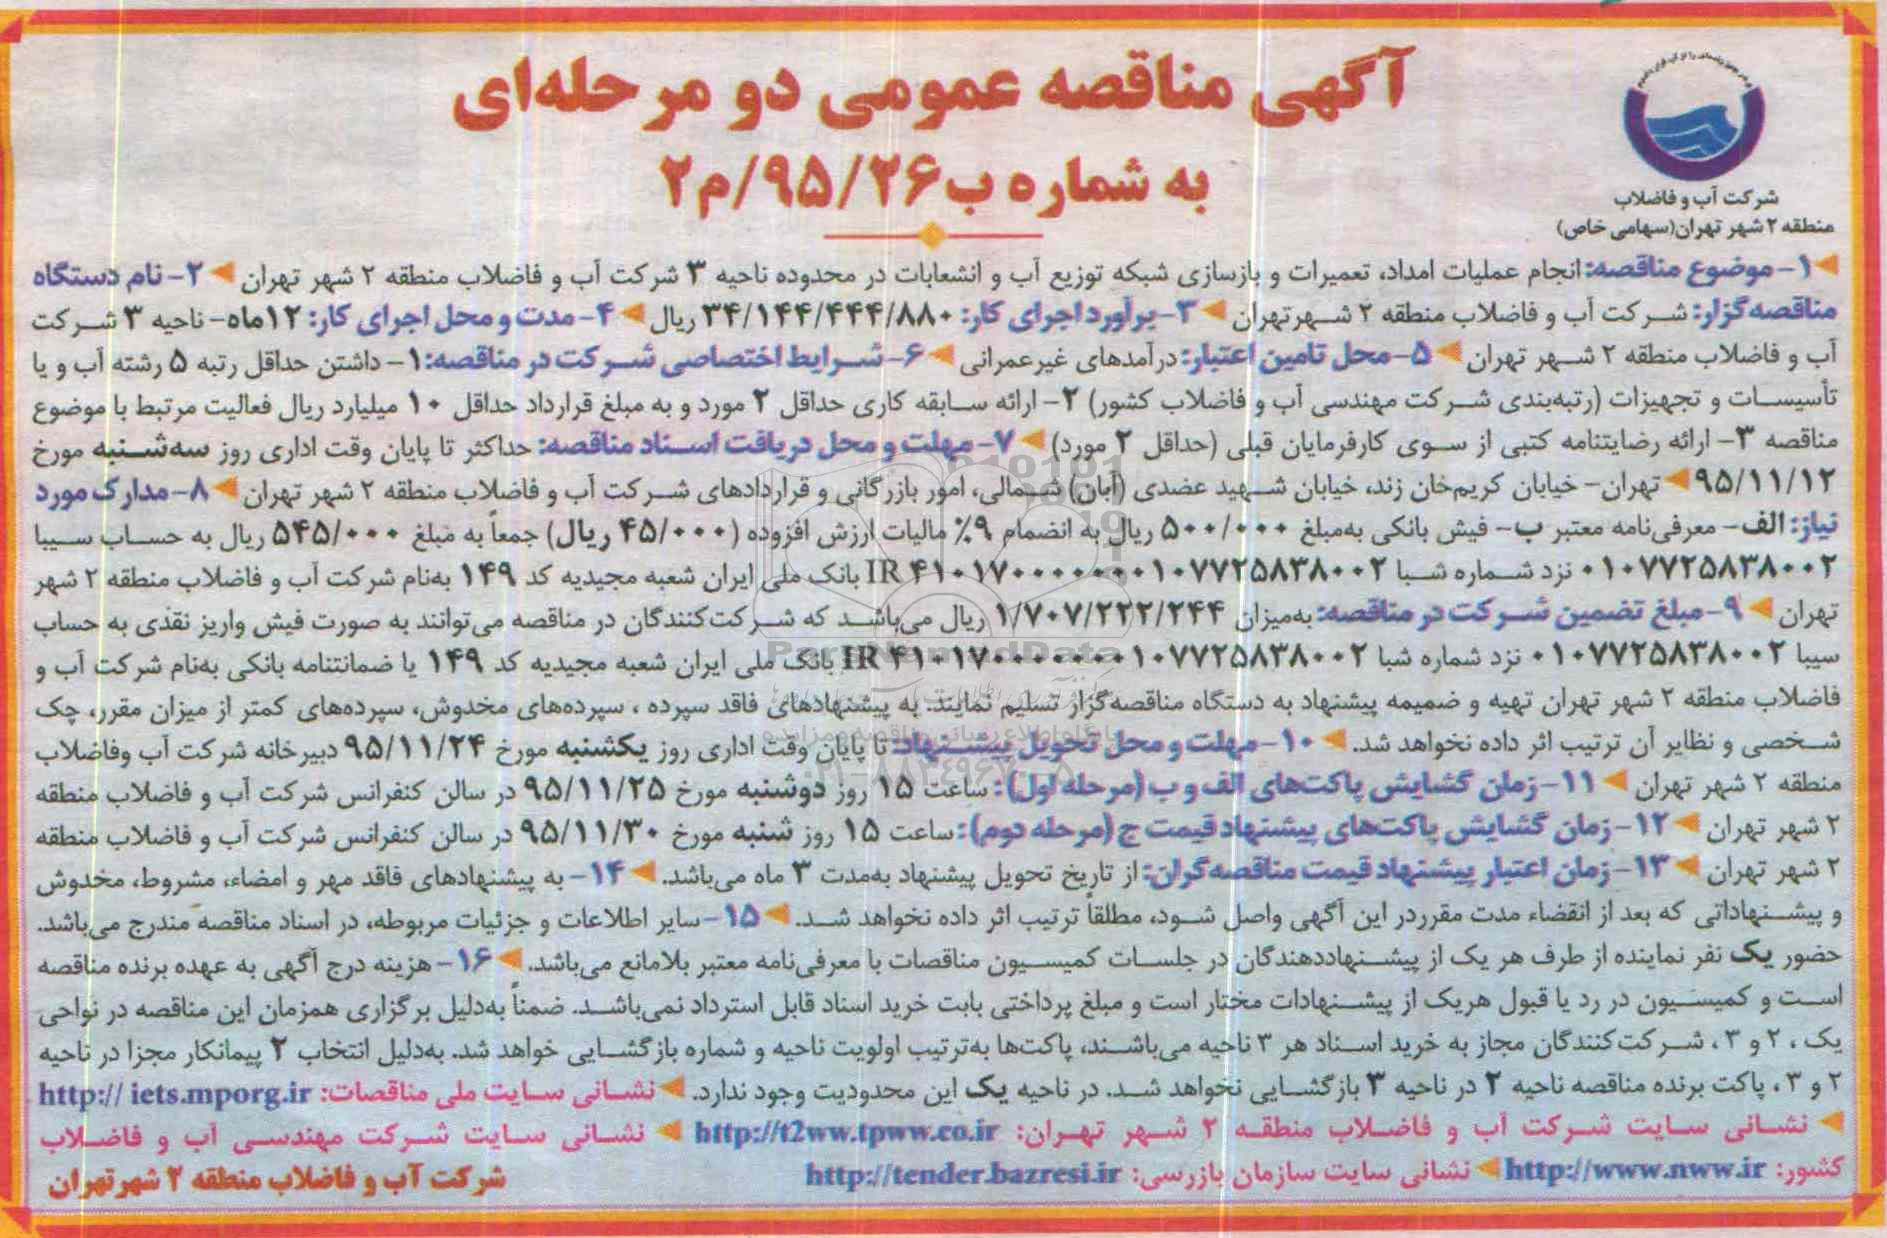 آگهی مناقصه عمومی دو مرحله‌ای
به شماره ب۹۵/۲۶/م۲
شرکت آب و فاضلاب
منطقه ۲ شهر تهران(سهامی خاص)
۱- موضوع مناقصه: انجام عملیات امداد، تعمیرات و بازسازی شبکه توزیع آب و انشعابات در محدوده ناحیه ۳ شرکت آب و فاضلاب منطقه ۲ شهر تهران ۲- نام دستگاه
مناقصه‌گزار: شرکت آب و فاضلاب منطقه ۲ شهرتهران ۳- برآورد اجرای کار: ۳۴/۱۴۴/۴۴۴/۸۸۰ ریال ۴- مدت و محل اجرای کار: ۱۲ماه- ناحیه ۳ شرکت
آب و فاضلاب منطقه ۲ شهر تهران ۵- محل تامین اعتبار: درآمدهای غیرعمرانی ۶- شرایط اختصاصی شرکت در مناقصه: ۱- داشتن حداقل رتبه ۵ رشته آب و یا
تأسیسات و تجهیزات (رتبه‌بندی شرکت مهندسی آب و فاضلاب کشور) ۲- ارائه سابقه کاری حداقل ۲ مورد و به مبلغ قرارداد حداقل ۱۰ میلیارد ریال فعالیت مرتبط با موضوع
مناقصه ۳- ارائه رضایتنامه کتبی از سوی کارفرمایان قبلی (حداقل ۲ مورد) ۷- مهلت و محل دریافت اسناد مناقصه: حداکثر تا پایان وقت اداری روز سه‌شنبه مورخ
۹۵/۱۱/۱۲ تهران- خیابان کریم‌خان زند، خیابان شهید عضدی (آبان) شمالی، امور بازرگانی و قراردادهای شرکت آب و فاضلاب منطقه ۲ شهر تهران ۸- مدارک مورد
نیاز: الف- معرفی‌نامه معتبر ب- فیش بانکی به‌مبلغ ۵۰۰/۰۰۰ ریال به انضمام ۹٪ مالیات ارزش افزوده (۴۵/۰۰۰ ریال) جمعاً به مبلغ ۵۴۵/۰۰۰ ریال به حساب سیبا
۰۱۰۷۷۲۵۸۳۸۰۰۲ نزد شماره شبا IR ۴۱۰۱۷۰۰۰۰۰۰۰۰۱۰۷۷۲۵۸۳۸۰۰۲ بانک ملی ایران شعبه مجیدیه کد ۱۴۹ به‌نام شرکت آب و فاضلاب منطقه ۲ شهر
تهران ۹- مبلغ تضمین شرکت در مناقصه: به‌میزان ۱/۷۰۷/۲۲۲/۲۴۴ ریال می‌باشد که شرکت‌کنندگان در مناقصه می‌توانند به صورت فیش واریز نقدی به حساب
سیبا ۰۱۰۷۷۲۵۸۳۸۰۰۲ نزد شماره شبا IR ۴۱۰۱۷۰۰۰۰۰۰۰۰۱۰۷۷۲۵۸۳۸۰۰۲ بانک ملی ایران شعبه مجیدیه کد ۱۴۹ یا ضمانتنامه بانکی به‌نام شرکت آب و
فاضلاب منطقه ۲ شهر تهران تهیه و ضمیمه پیشنهاد به دستگاه مناقصه‌گزار تسلیم نمایند. به پیشنهادهای فاقد سپرده ، سپرده‌های مخدوش، سپرده‌های کمتر از میزان مقرر، چک
شخصی و نظایر آن ترتیب اثر داده نخواهد شد. ۱۰- مهلت و محل تحویل پیشنهاد: تا پایان وقت اداری روز یکشنبه مورخ ۹۵/۱۱/۲۴ دبیرخانه شرکت آب وفاضلاب
منطقه ۲ شهر تهران ۱۱- زمان گشایش پاکت‌های الف و ب (مرحله اول): ساعت ۱۵ روز دوشنبه مورخ ۹۵/۱۱/۲۵ در سالن کنفرانس شرکت آب و فاضلاب منطقه
۲ شهر تهران ۱۲- زمان گشایش پاکت‌های پیشنهاد قیمت ج (مرحله دوم): ساعت ۱۵ روز شنبه مورخ ۹۵/۱۱/۳۰ در سالن کنفرانس شرکت آب و فاضلاب منطقه
۲ شهر تهران ۱۳- زمان اعتبار پیشنهاد قیمت مناقصه‌گران: از تاریخ تحویل پیشنهاد به‌مدت ۳ ماه می‌باشد. ۱۴- به پیشنهادهای فاقد مهر و امضاء، مشروط، مخدوش
و پیشنهاداتی که بعد از انقضاء مدت مقرردر این آگهی واصل شود، مطلقاً ترتیب اثر داده نخواهد شد. ۱۵- سایر اطلاعات و جزئیات مربوطه، در اسناد مناقصه مندرج می‌باشد.
حضور یک نفر نماینده از طرف هر یک از پیشنهاددهندگان در جلسات کمیسیون مناقصات با معرفی‌نامه معتبر بلامانع می‌باشد. ۱۶- هزینه درج آگهی به عهده برنده مناقصه
است و کمیسیون در رد یا قبول هریک از پیشنهادات مختار است و مبلغ پرداختی بابت خرید اسناد قابل استرداد نمی‌باشد. ضمناً به‌دلیل برگزاری همزمان این مناقصه در نواحی
یک ، ۲ و ۳ ، شرکت‌کنندگان مجاز به خرید اسناد هر ۳ ناحیه می‌باشند، پاکت‌ها به‌ترتیب اولویت ناحیه و شماره بازگشایی خواهد شد. به‌دلیل انتخاب ۲ پیمانکار مجزا در ناحیه
۲ و ۳ ، پاکت برنده مناقصه ناحیه ۲ در ناحیه ۳ بازگشایی نخواهد شد. در ناحیه یک این محدودیت وجود ندارد. نشانی سایت ملی مناقصات: http:// iets.mporg.ir
نشانی سایت شرکت آب و فاضلاب منطقه ۲ شهر تهران: http://t2ww.tpww.co.ir نشانی سایت شرکت مهندسی آب و فاضلاب
کشور: http://www.nww.ir نشانی سایت سازمان بازرسی: http://tender.bazresi.ir
شرکت آب و فاضلاب منطقه ۲ شهرتهران